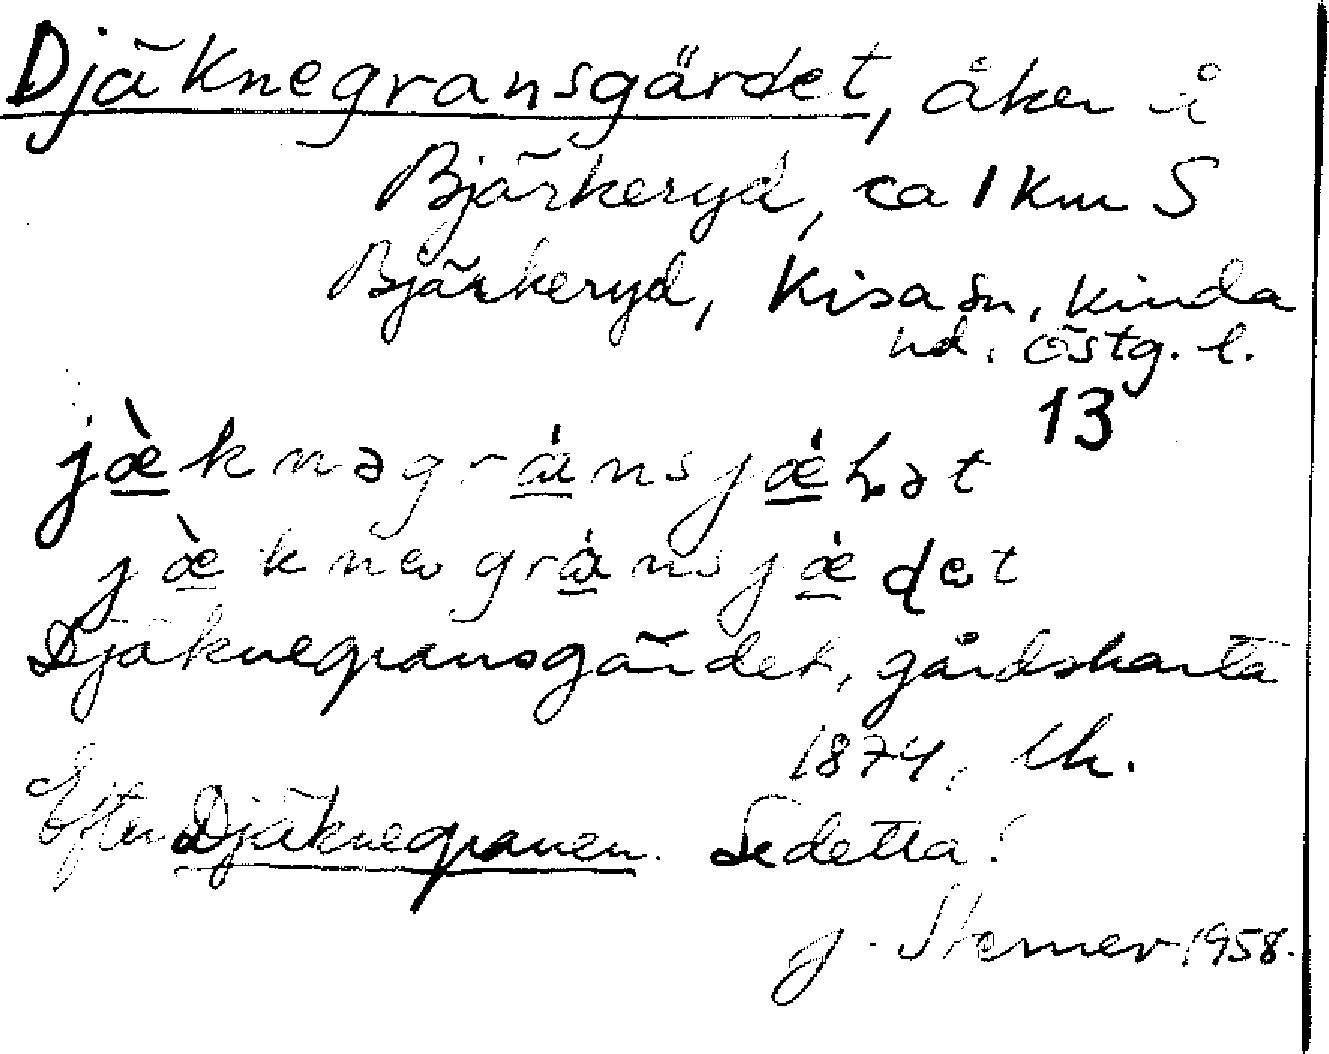 Djäknegransgärdet, åker å
Bjärkeryd, ca 1 km S
Bjärkeryd, Kisa sn, Kinda
hd. Östg. l.
13
jæ̀knəgrànsjǽɽət
jæ̀knegrànsjǽdet
Djäknegransgärdet, gårdskarta
1874,
Efter Djäknegranen. Se detta!
J. Sterner 1958.